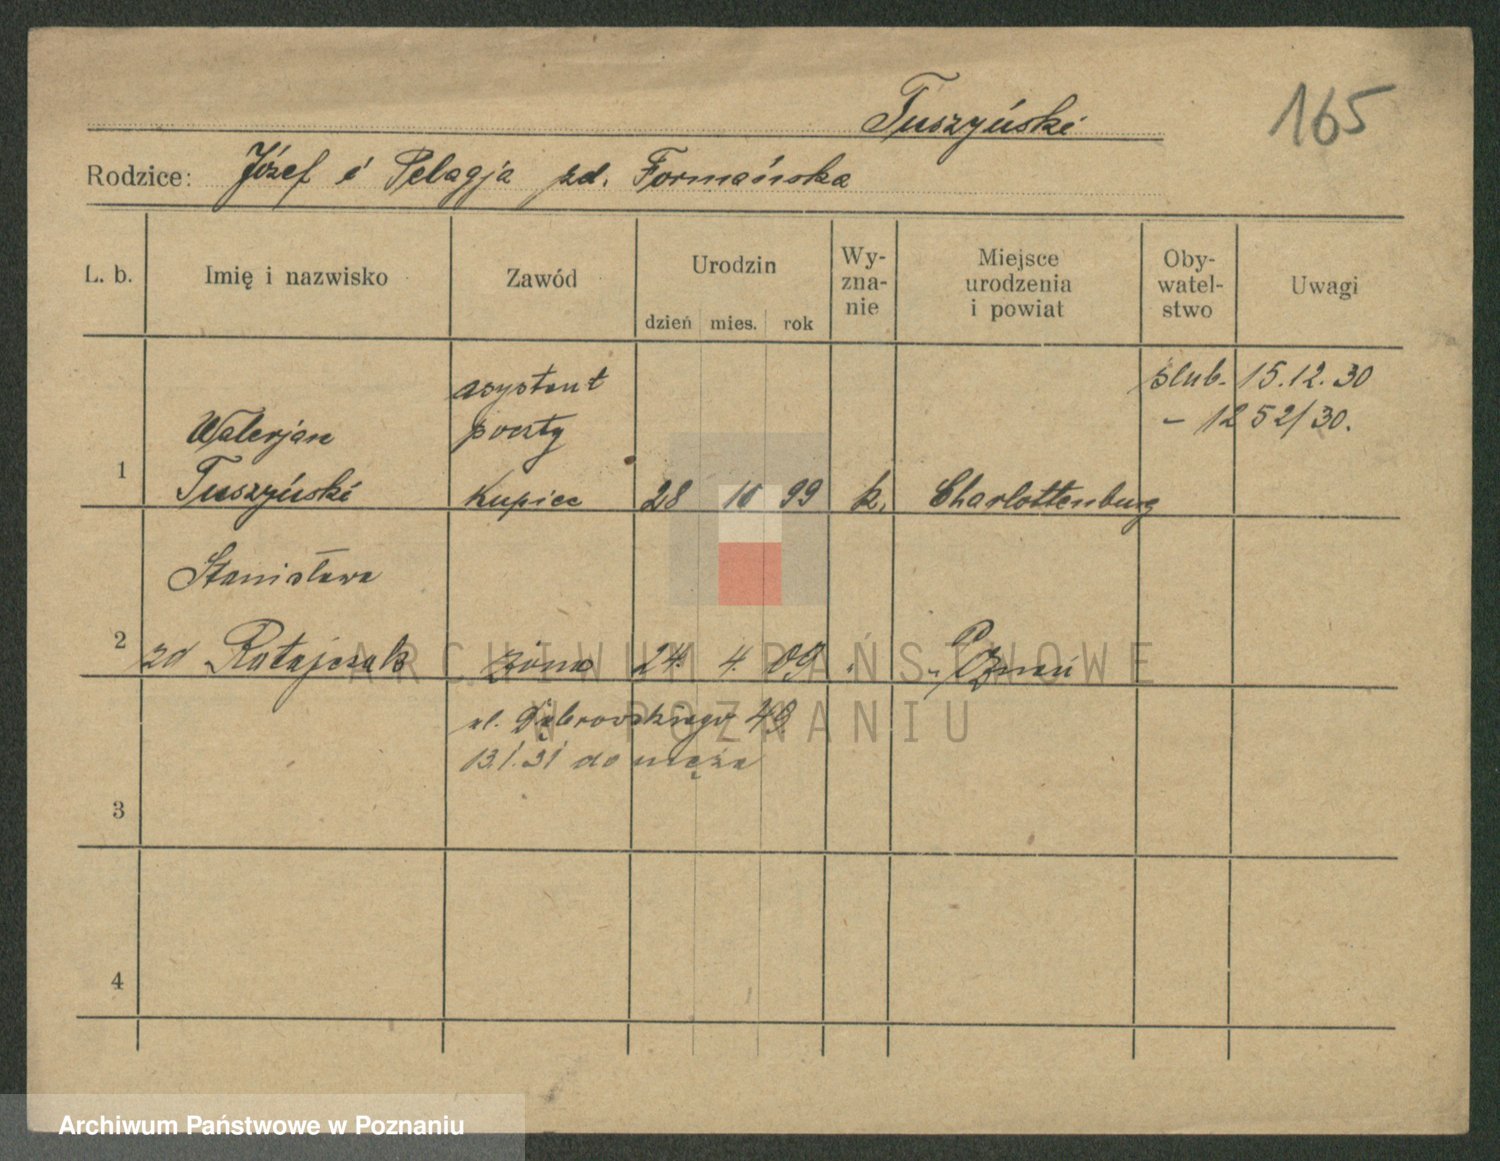 Tuszyński
165
Rodzice: Józef i Pelagja zd. Formańska
L. b.
Imię i nazwisko
Zawód
Urodzin
dzień mies. rok
Wy-
zna-
nie
Miejsce
urodzenia
i powiat
Oby-
watel-
stwo
Uwagi
asystent
poczty
ślub. 15.12.30
- 1252/30.
1
Walerjan
Tuszyński
kupiec
28 10 99 k. Charlottenburg
2
Stanisława
zd Ratajczak żona 24. 4. 09 " " Pznań
ul. Dąbrowskiego 49
13.1.31 do męża
3
4
ARCHIWUM PAŃSTWOWE
W POZNANIU
Archiwum Państwowe w Poznaniu